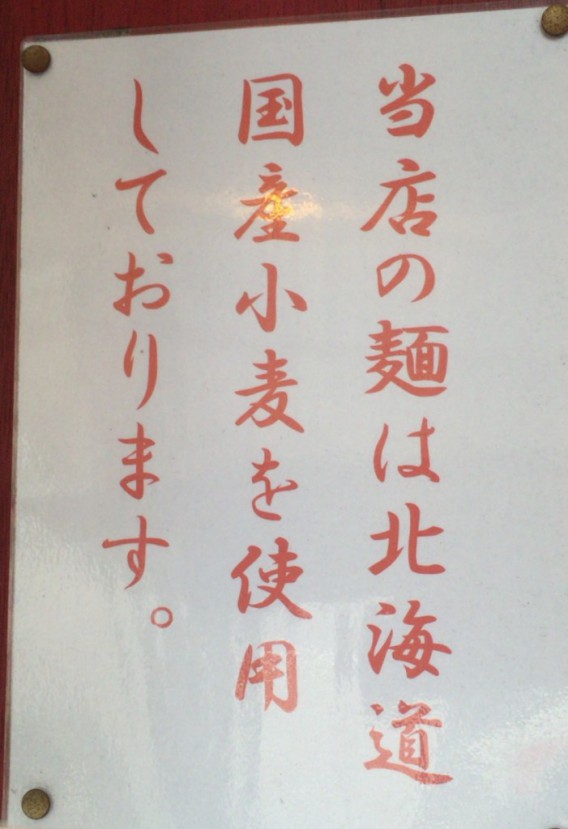 当店の麺は北海道
国産小麦を使用
しております。